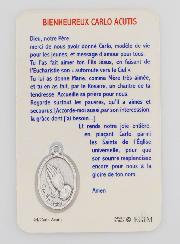 BIENHEUREUX CARLO ACUTIS
Dieu, notre Père,
merci de nous avoir donné Carlo, modèle de vie
pour les jeunes, et message d'amour pour tous.
Tu l'as fait aimer ton Fils Jésus, en faisant de
l'Eucharistie son « autoroute vers le Ciel ».
Tu lui as donné Marie, comme Mère très aimée,
et tu en as fait, par le Rosaire, un chantre de la tendresse.
Accueille sa prière pour nous.
Regarde surtout les pauvres, qu'il a aimés et
secourus. (Accorde-moi aussi, par son intercession,
la grâce dont j'ai besoin...)
Et rends notre joie entière,
en plaçant Carlo parmi
les Saints de l'Église
universelle, pour que
son sourire resplendisse
encore pour nous à la
gloire de ton nom.
Amen